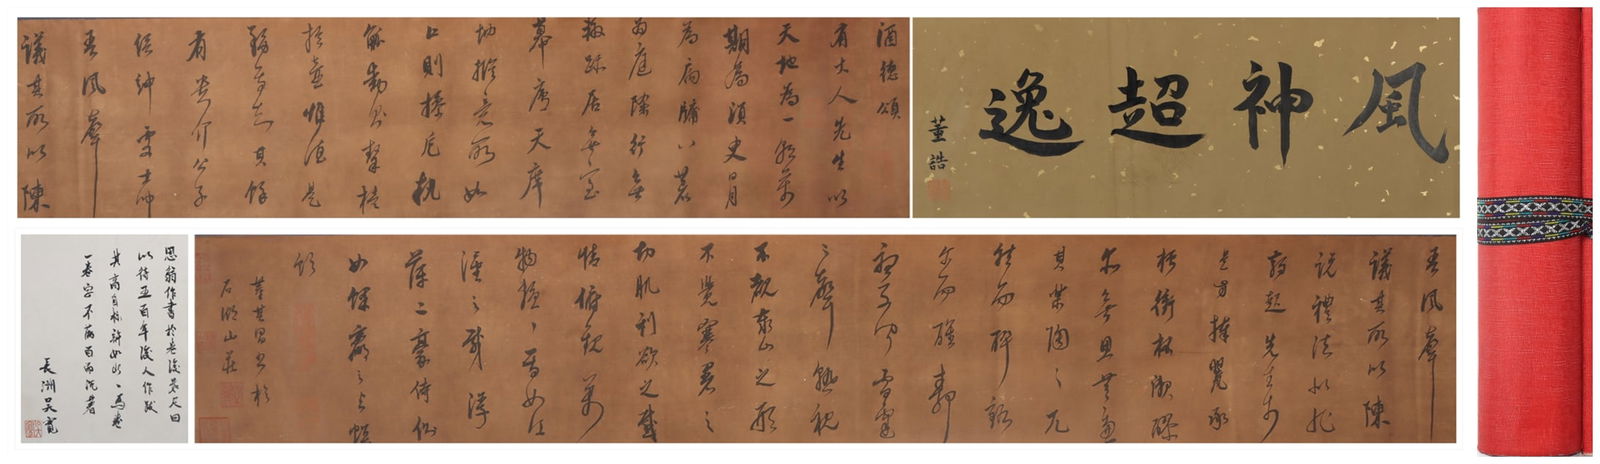 風神超逸
董誥
酒德頌
有大人先生以
天地為一朝萬
期為須臾日月
為扃牖八荒
為庭除行無
轍跡居無室
幕廬天席
地縱意所如
止則操卮執
觚動則挈榼
提壺惟酒是
務焉知其餘
有貴介公子
搢紳處士聞
吾風聲
議其所以陳
吾風聲
議其所以陳
說禮法是非
鋒起先生於
是方捧甖承
槽銜杯漱醪
無思無慮
其樂陶陶兀
然而醉豁
尔而醒靜
聽不聞雷霆
之聲熟視
不覩泰山之形
不覺寒暑之
切肌利欲之感
情俯觀萬
物擾擾焉如江
漢之載浮
萍二豪侍側
如蜾蠃之與螟
蛉
董其昌書於
石湖山莊
思翁作書於
以待五百年後人作跋
其高自標許如此
一卷字不滿百而沉著
長洲吳寬